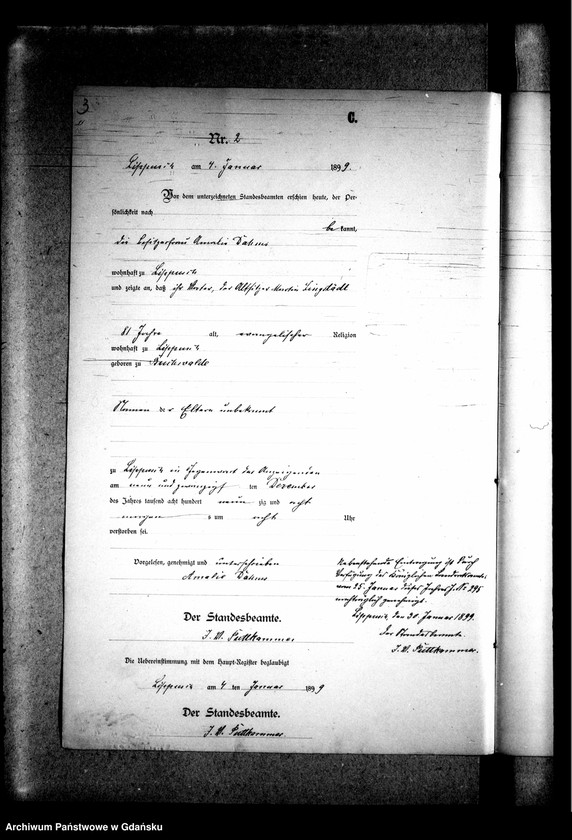 3
C.
Nr. 2
am 4. Januar 1899.
Vor dem unterzeichneten Standesbeamten erschien heute, der Per-
sönlichkeit nach
be kannt,
die Besitzerfrau Amalie
wohnhaft zu
und zeigte an, daß ihr Vater, der Altsitzer Martin
81 Jahre alt, evangelischer Religion
wohnhaft zu
geboren zu Buchwalde
Namen der Eltern unbekannt
zu in Gegenwart der Anzeigenden
am neun und zwanzigsten Dezember
des Jahres tausend acht hundert neun zig und acht
morgens um acht Uhr
verstorben sei.
Vorgelesen, genehmigt und unterschrieben
Amalie
Der Standesbeamte.
Puttkammer
Die Uebereinstimmung mit dem Haupt-Register beglaubigt
am 4 ten Januar 1899
Der Standesbeamte.
Puttkammer
Nebenstehende Eintragung ist durch
Verfügung des Königlichen
vom 25. Januar dieses Jahres J. № 295
nachträglich genehmigt.
den 30. Januar 1899.
Der Standesbeamte.
Puttkammer.
Archiwum Państwowe w Gdańsku